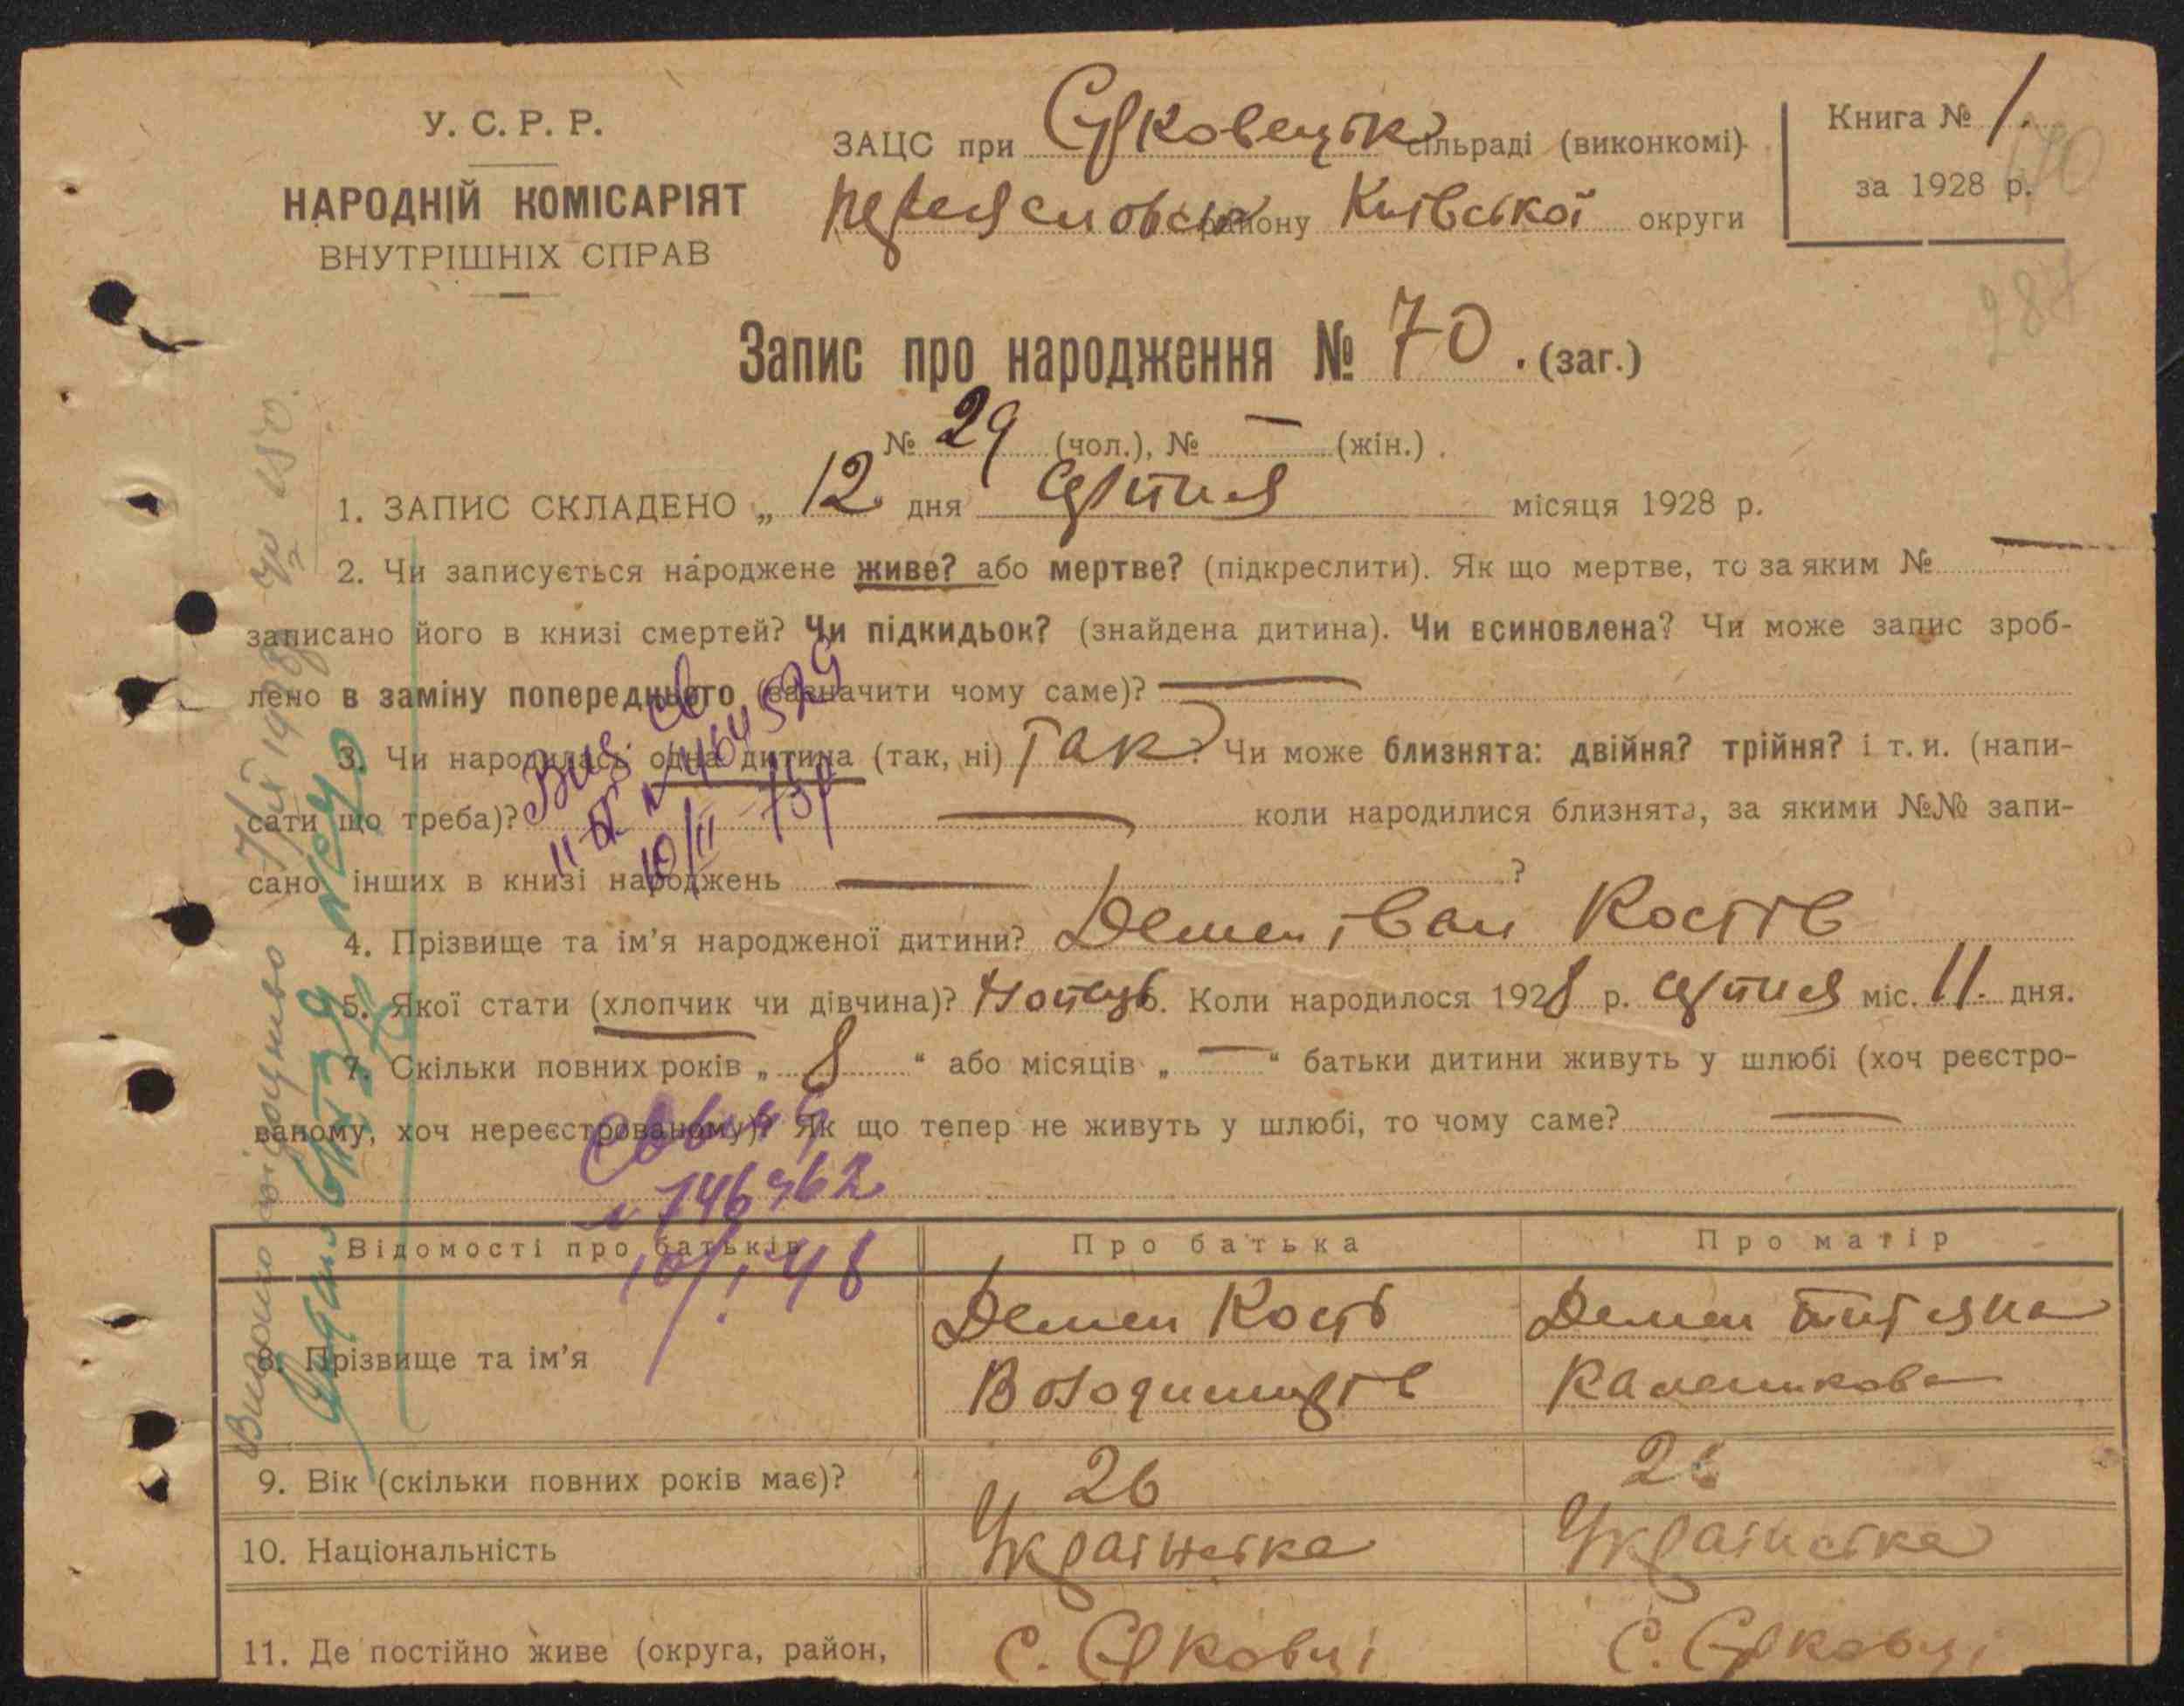 У. С. Р. Р.
НАРОДНІЙ КОМІСАРІЯТ
ВНУТРІШНІХ СПРАВ
ЗАЦС при сільраді (виконкомі)
району Київської округи
Книга № 1.
за 1928 р.
70
287
Запис про народження № 70. (заг.)
№ 29 (чол.), № — (жін.).
1. ЗАПИС СКЛАДЕНО „ 12 дня серпня місяця 1928 р.
2. Чи записується народжене живе? або мертве? (підкреслити). Як що мертве, то за яким № —
записано його в книзі смертей? Чи підкидьок? (знайдена дитина). Чи всиновлена? Чи може запис зроб-
лено в заміну попереднього (зазначити чому саме)? —
3. Чи народилась одна дитина (так, ні) Так? Чи може близнята: двійня? трійня? і т. и. (напи-
сати що треба)? — коли народилися близнята, за якими №№ запи-
сано інших в книзі народжень — ?
4. Прізвище та ім'я народженої дитини? Демен Іван Костів
5. Якої стати (хлопчик чи дівчина)? Коли народилося 1928 р. серпня міс. 11. дня.
7. Скільки повних років „ 8 “ або місяців „ — “ батьки дитини живуть у шлюбі (хоч реєстро-
ваному, хоч нереєстрованому)? Як що тепер не живуть у шлюбі, то чому саме? —
№ 746762
10/I 48
Відомості про батьків Про батька Про матір
8. Прізвище та ім'я Демен Кость Демен Титяна
Володимирів Каленикова
9. Вік (скільки повних років має)? 26
10. Національність Українська Українська
11. Де постійно живе (округа, район, с. с.